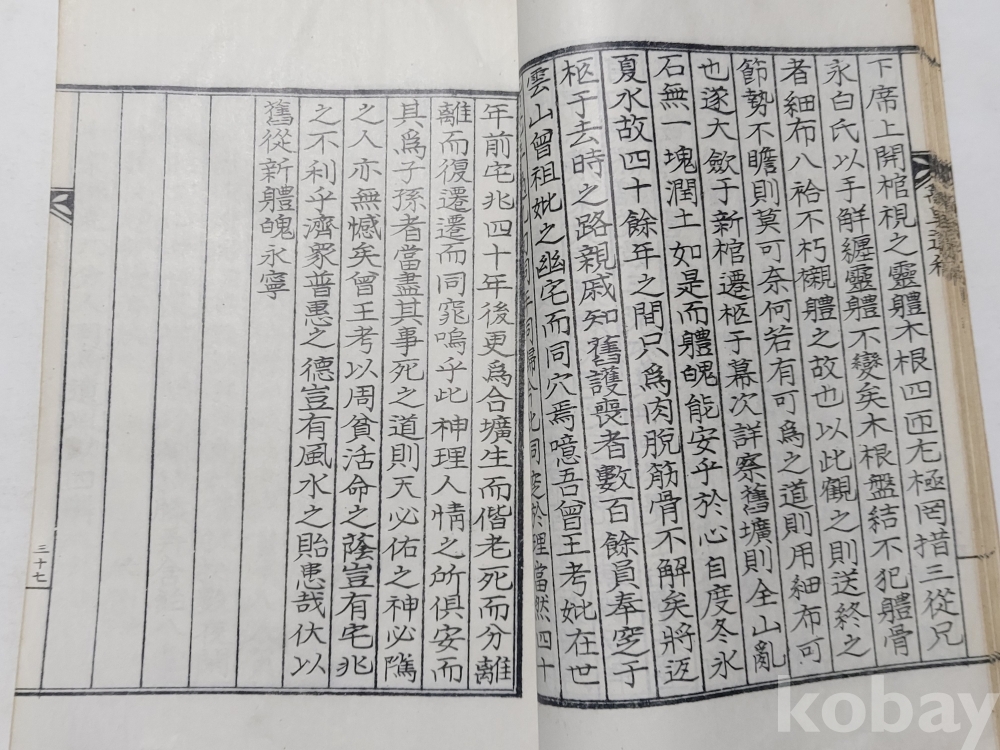 下席上開棺視之靈體木根四匝尤極罔措三從兄
永白氏以手解纒靈體不變矣木根盤結不犯體骨
者細布八袷不朽襯體之故也以此觀之則送終之
節勢不贍則莫可奈何若有可爲之道則用細布可
也遂大歛于新棺遷柩于幕次詳察舊壙則全山亂
石無一塊潤土如是而體魄能安乎於心自度冬氷
夏水故四十餘年之間只爲肉脫筋骨不解矣將返
柩于去時之路親戚知舊護喪者數百餘員奉窆于
雲山曾祖妣之幽宅而同穴焉噫吾曾王考妣在世
同歸於此同窆於理當然四十
年前宅兆四十年後更爲合壙生而偕老死而分離
離而復遷遷而同窕嗚乎此神理人情之所俱安而
其爲子孫者當盡其事死之道則天必佑之神必隲
之人亦無憾矣曾王考以周貧活命之蔭豈有宅兆
之不利乎濟衆普恩之德豈有風水之貽患哉伏以
舊從新體魄永寧
三十七
kobay